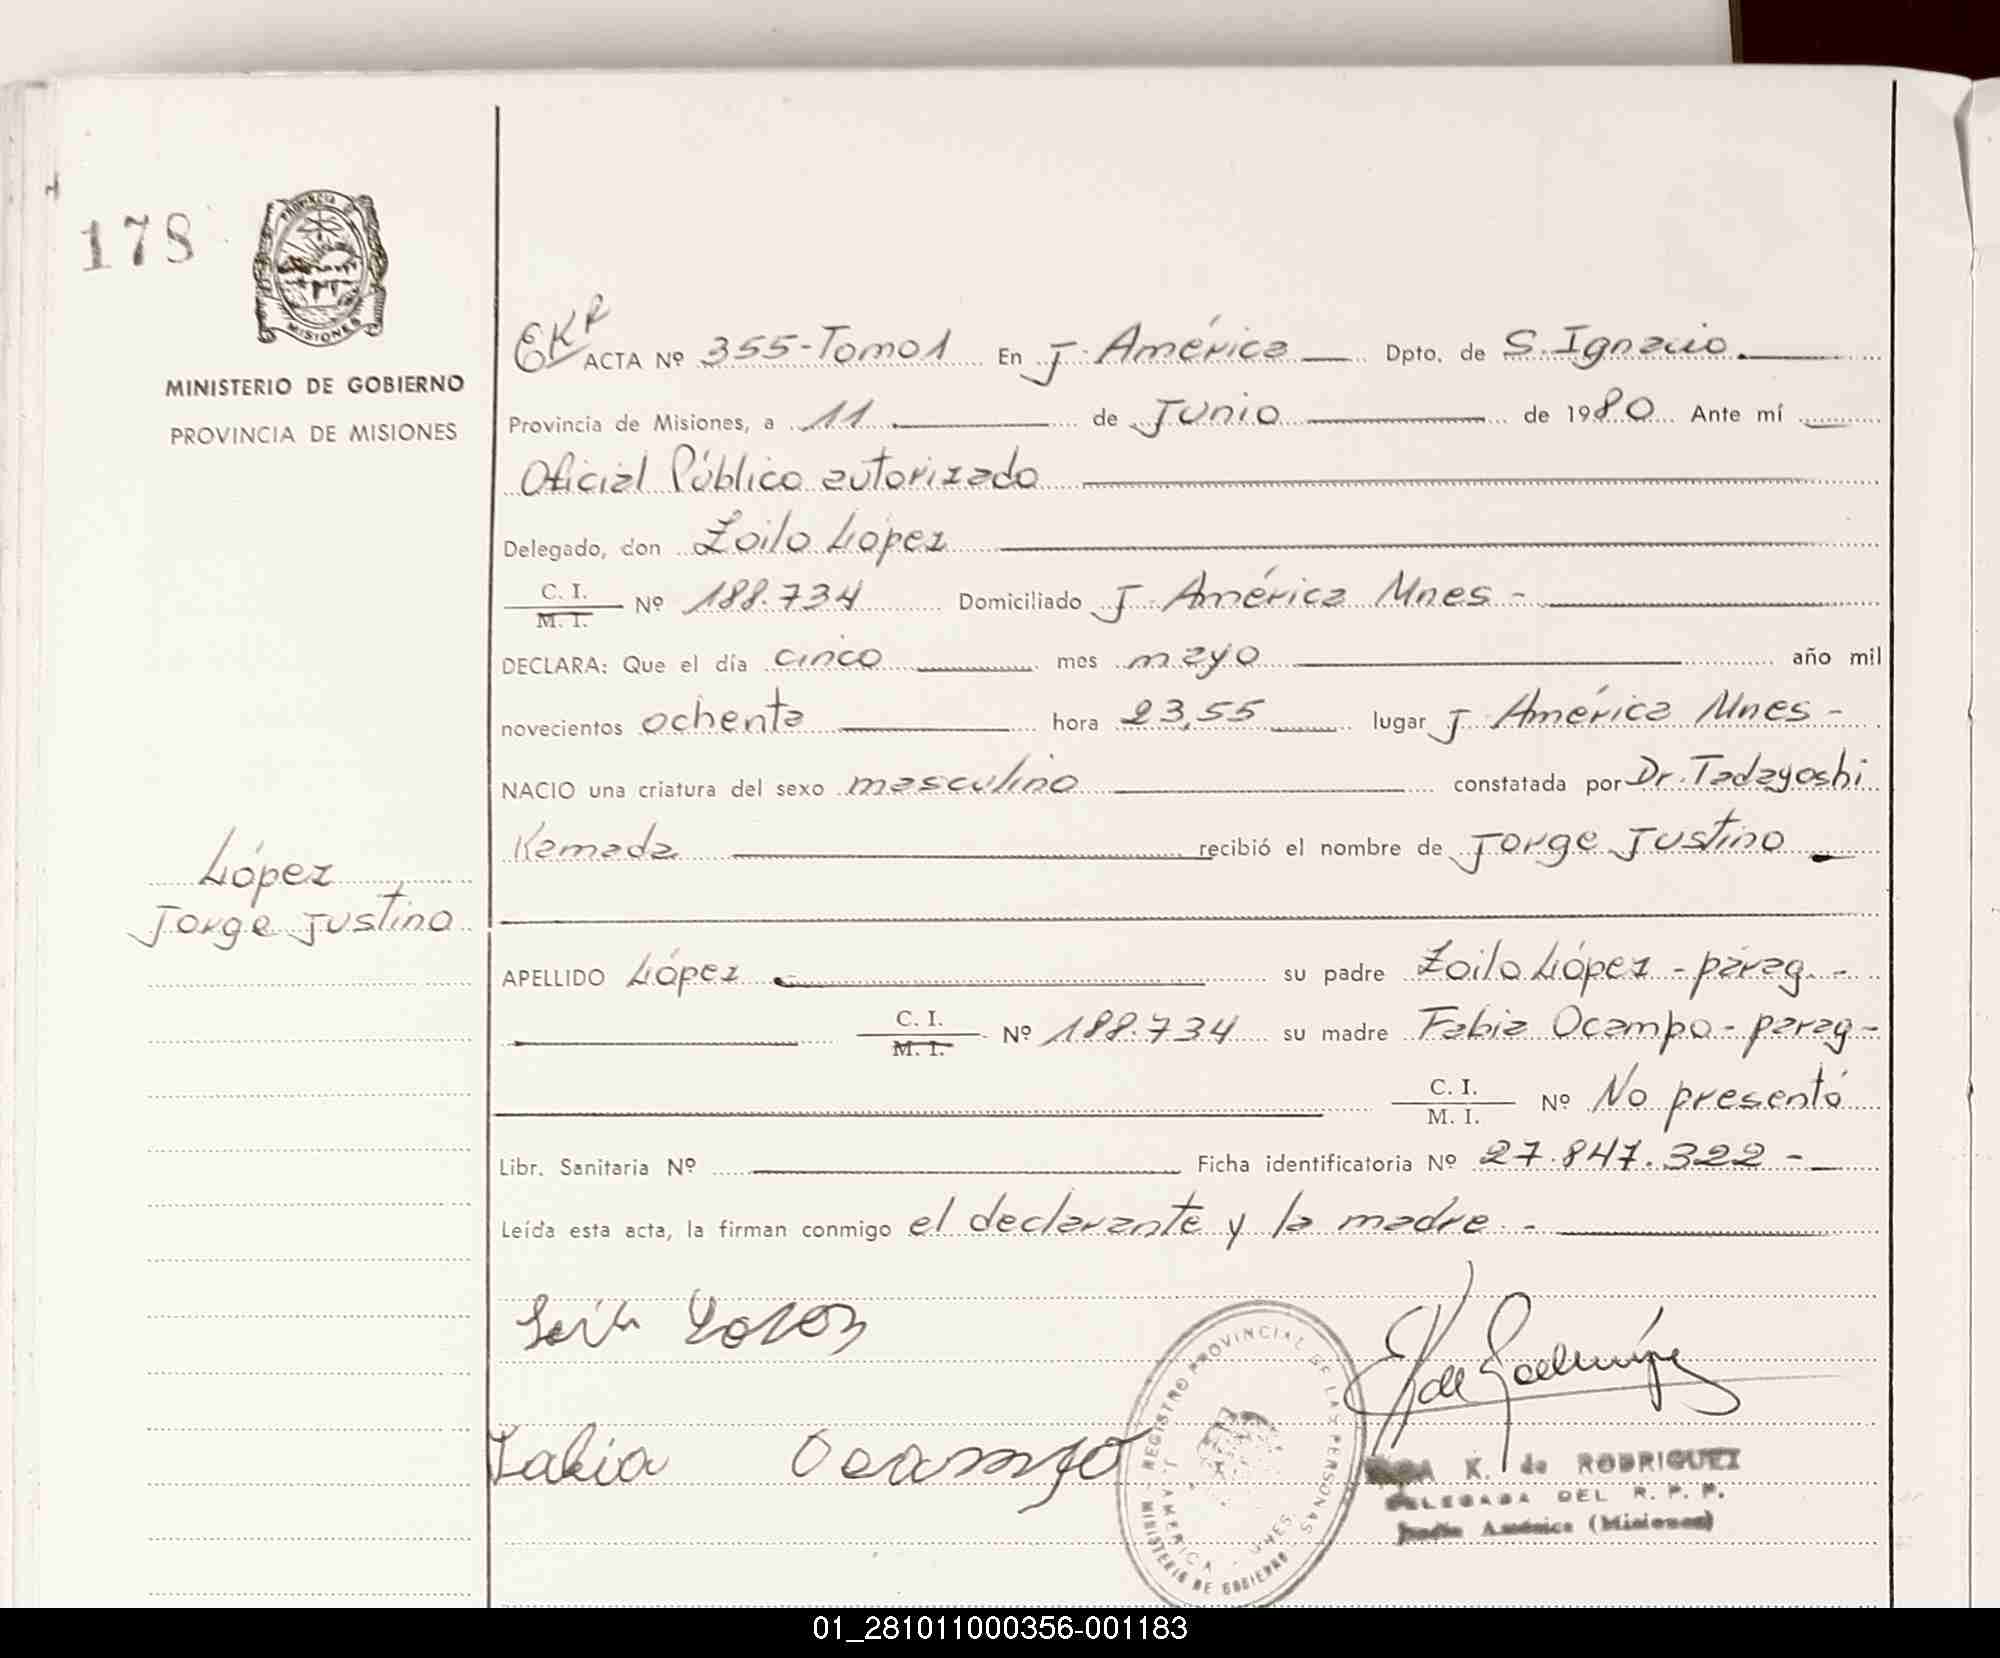 178
PROVINCIA DE
MISIONES
MINISTERIO DE GOBIERNO
PROVINCIA DE MISIONES
EKR
ACTA Nº 355-Tomo 1 En J. América Dpto. de S. Ignacio.
Provincia de Misiones, a 11 de Junio de 1980 Ante mí
Oficial Público autorizado
Delegado, don Zoilo López
C. I.
M. I. Nº 188.734 Domiciliado J. América Mnes -
DECLARA: Que el día cinco mes mayo año mil
novecientos ochenta hora 23,55 lugar J. América Mnes -
NACIO una criatura del sexo masculino constatada por Dr. Tadayoshi
Kamada recibió el nombre de Jorge Justino
López
Jorge Justino
APELLIDO López su padre Zoilo López - parag. -
C. I.
M. I. Nº 188.734 su madre Fabia Ocampo - parag -
C. I.
M. I. Nº No presentó
Libr. Sanitaria Nº Ficha identificatoria Nº 27.847.322 -
Leída esta acta, la firman conmigo el declarante y la madre. -
Fabia Ocampo
REGISTRO PROVINCIAL DE LAS PERSONAS
J. AMERICA - MNES.
MINISTERIO DE GOBIERNO
K. de RODRIGUEZ
DELEGADA DEL R. P. P.
Jardín América (Misiones)
01_281011000356-001183